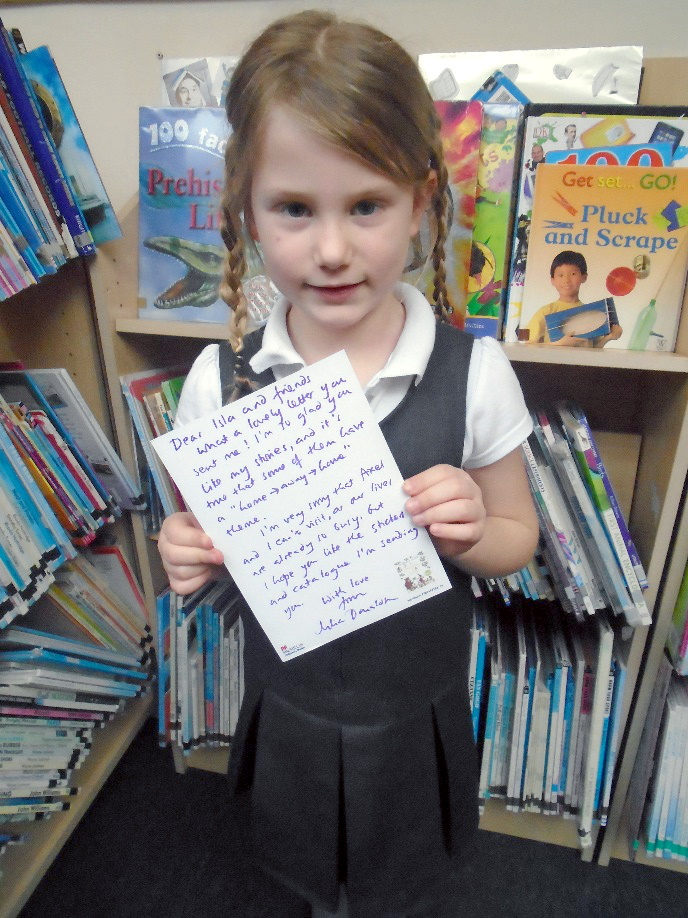 100 fac
Prehis
Li
DK
100
Get set... GO!
Pluck
and Scrape
Dear Isla and friends
What a lovely letter you
sent me! I'm so glad you
like my stories, and it's
true that some of them have
a "home → away → home"
theme.
I'm very sorry that Axel
and I can't visit, as our lives
are already so busy. But
I hope you like the stickers
and catalogue I'm sending
you. With love
from
Julia Donaldson
John Williams